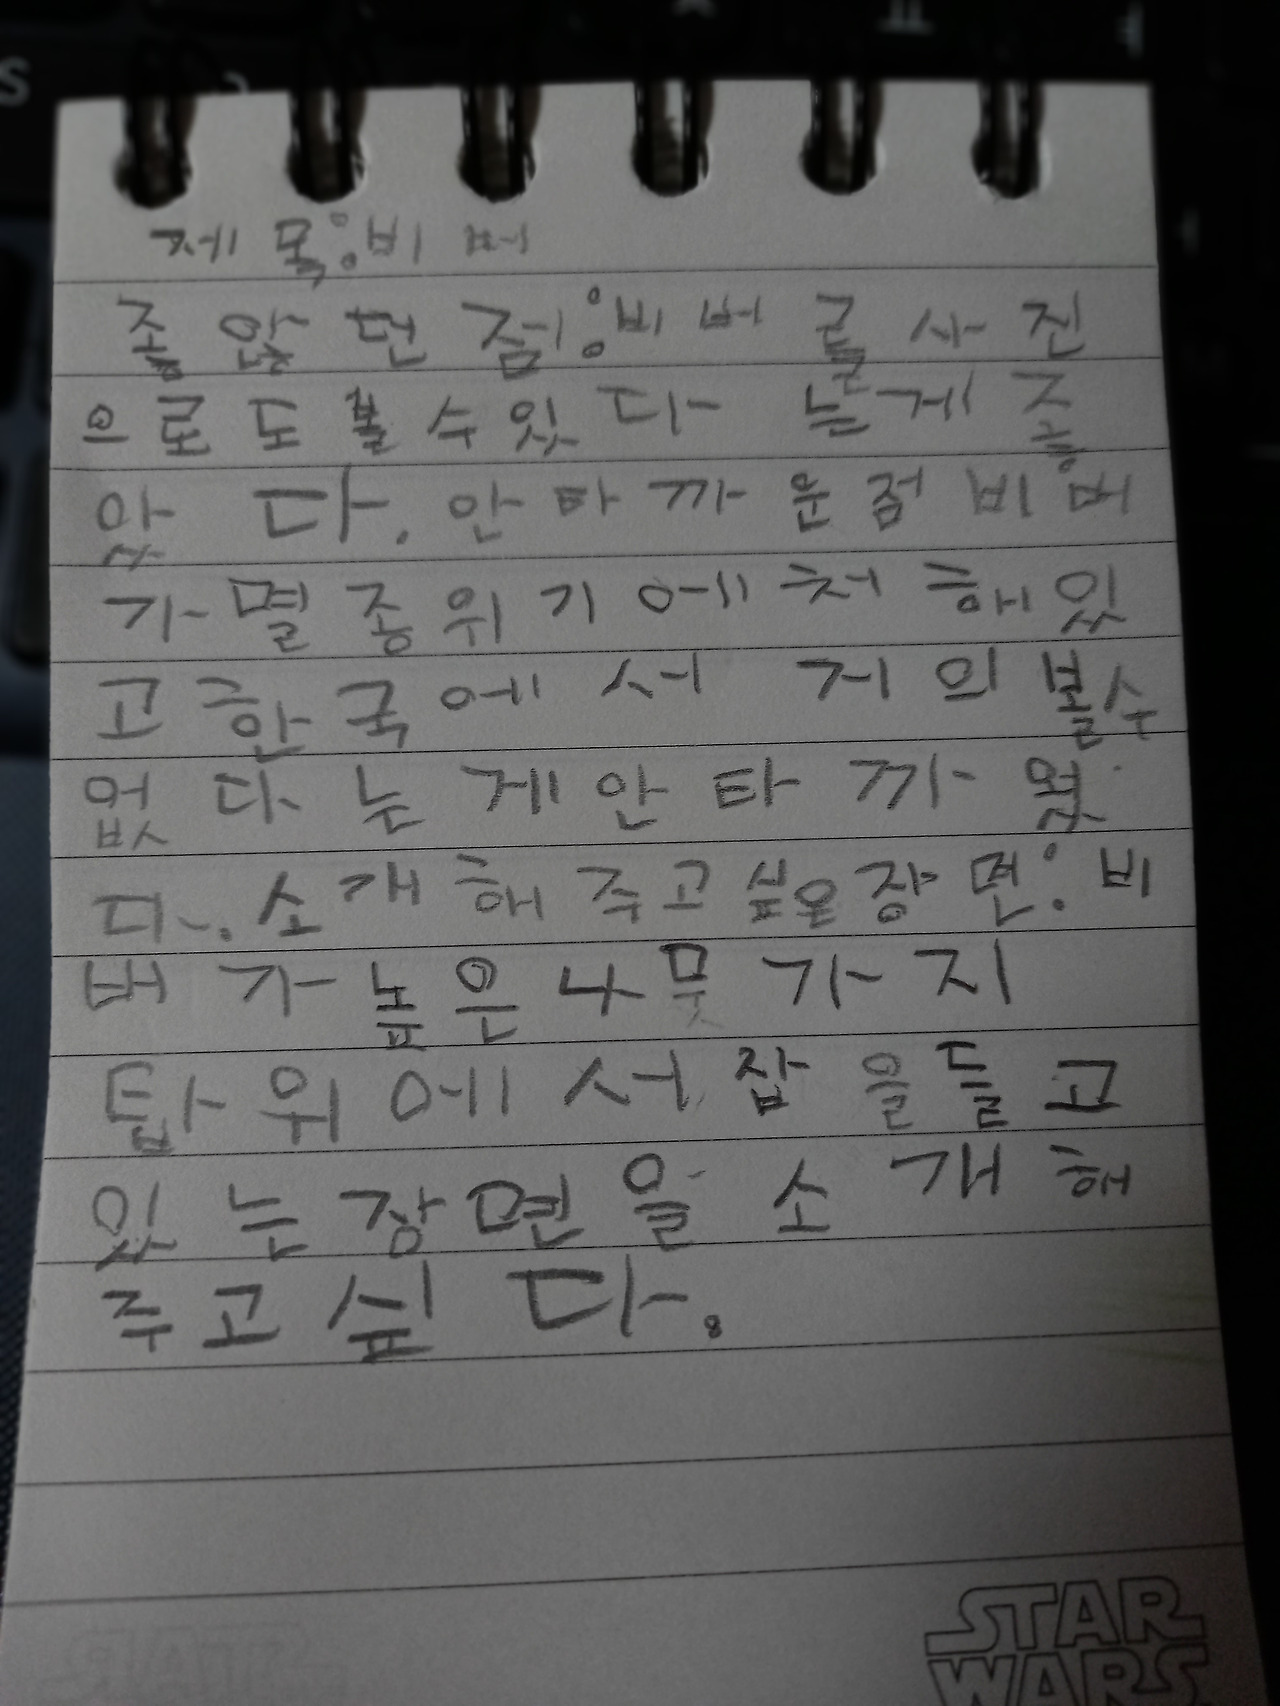 제목:비버
좋았던 점:비버를 사진
으로도 볼수있다 는게 좋
았다. 안타까운점 비버
가 멸종위기에 처해있
고 한국에서 거의 볼수
없다는게 안타까웠
다. 소개해주고싶은장면: 비
버가 높은 나뭇가지
탑위에서 잡을들고
있는장면을 소개해
주고싶다.
STAR
WARS